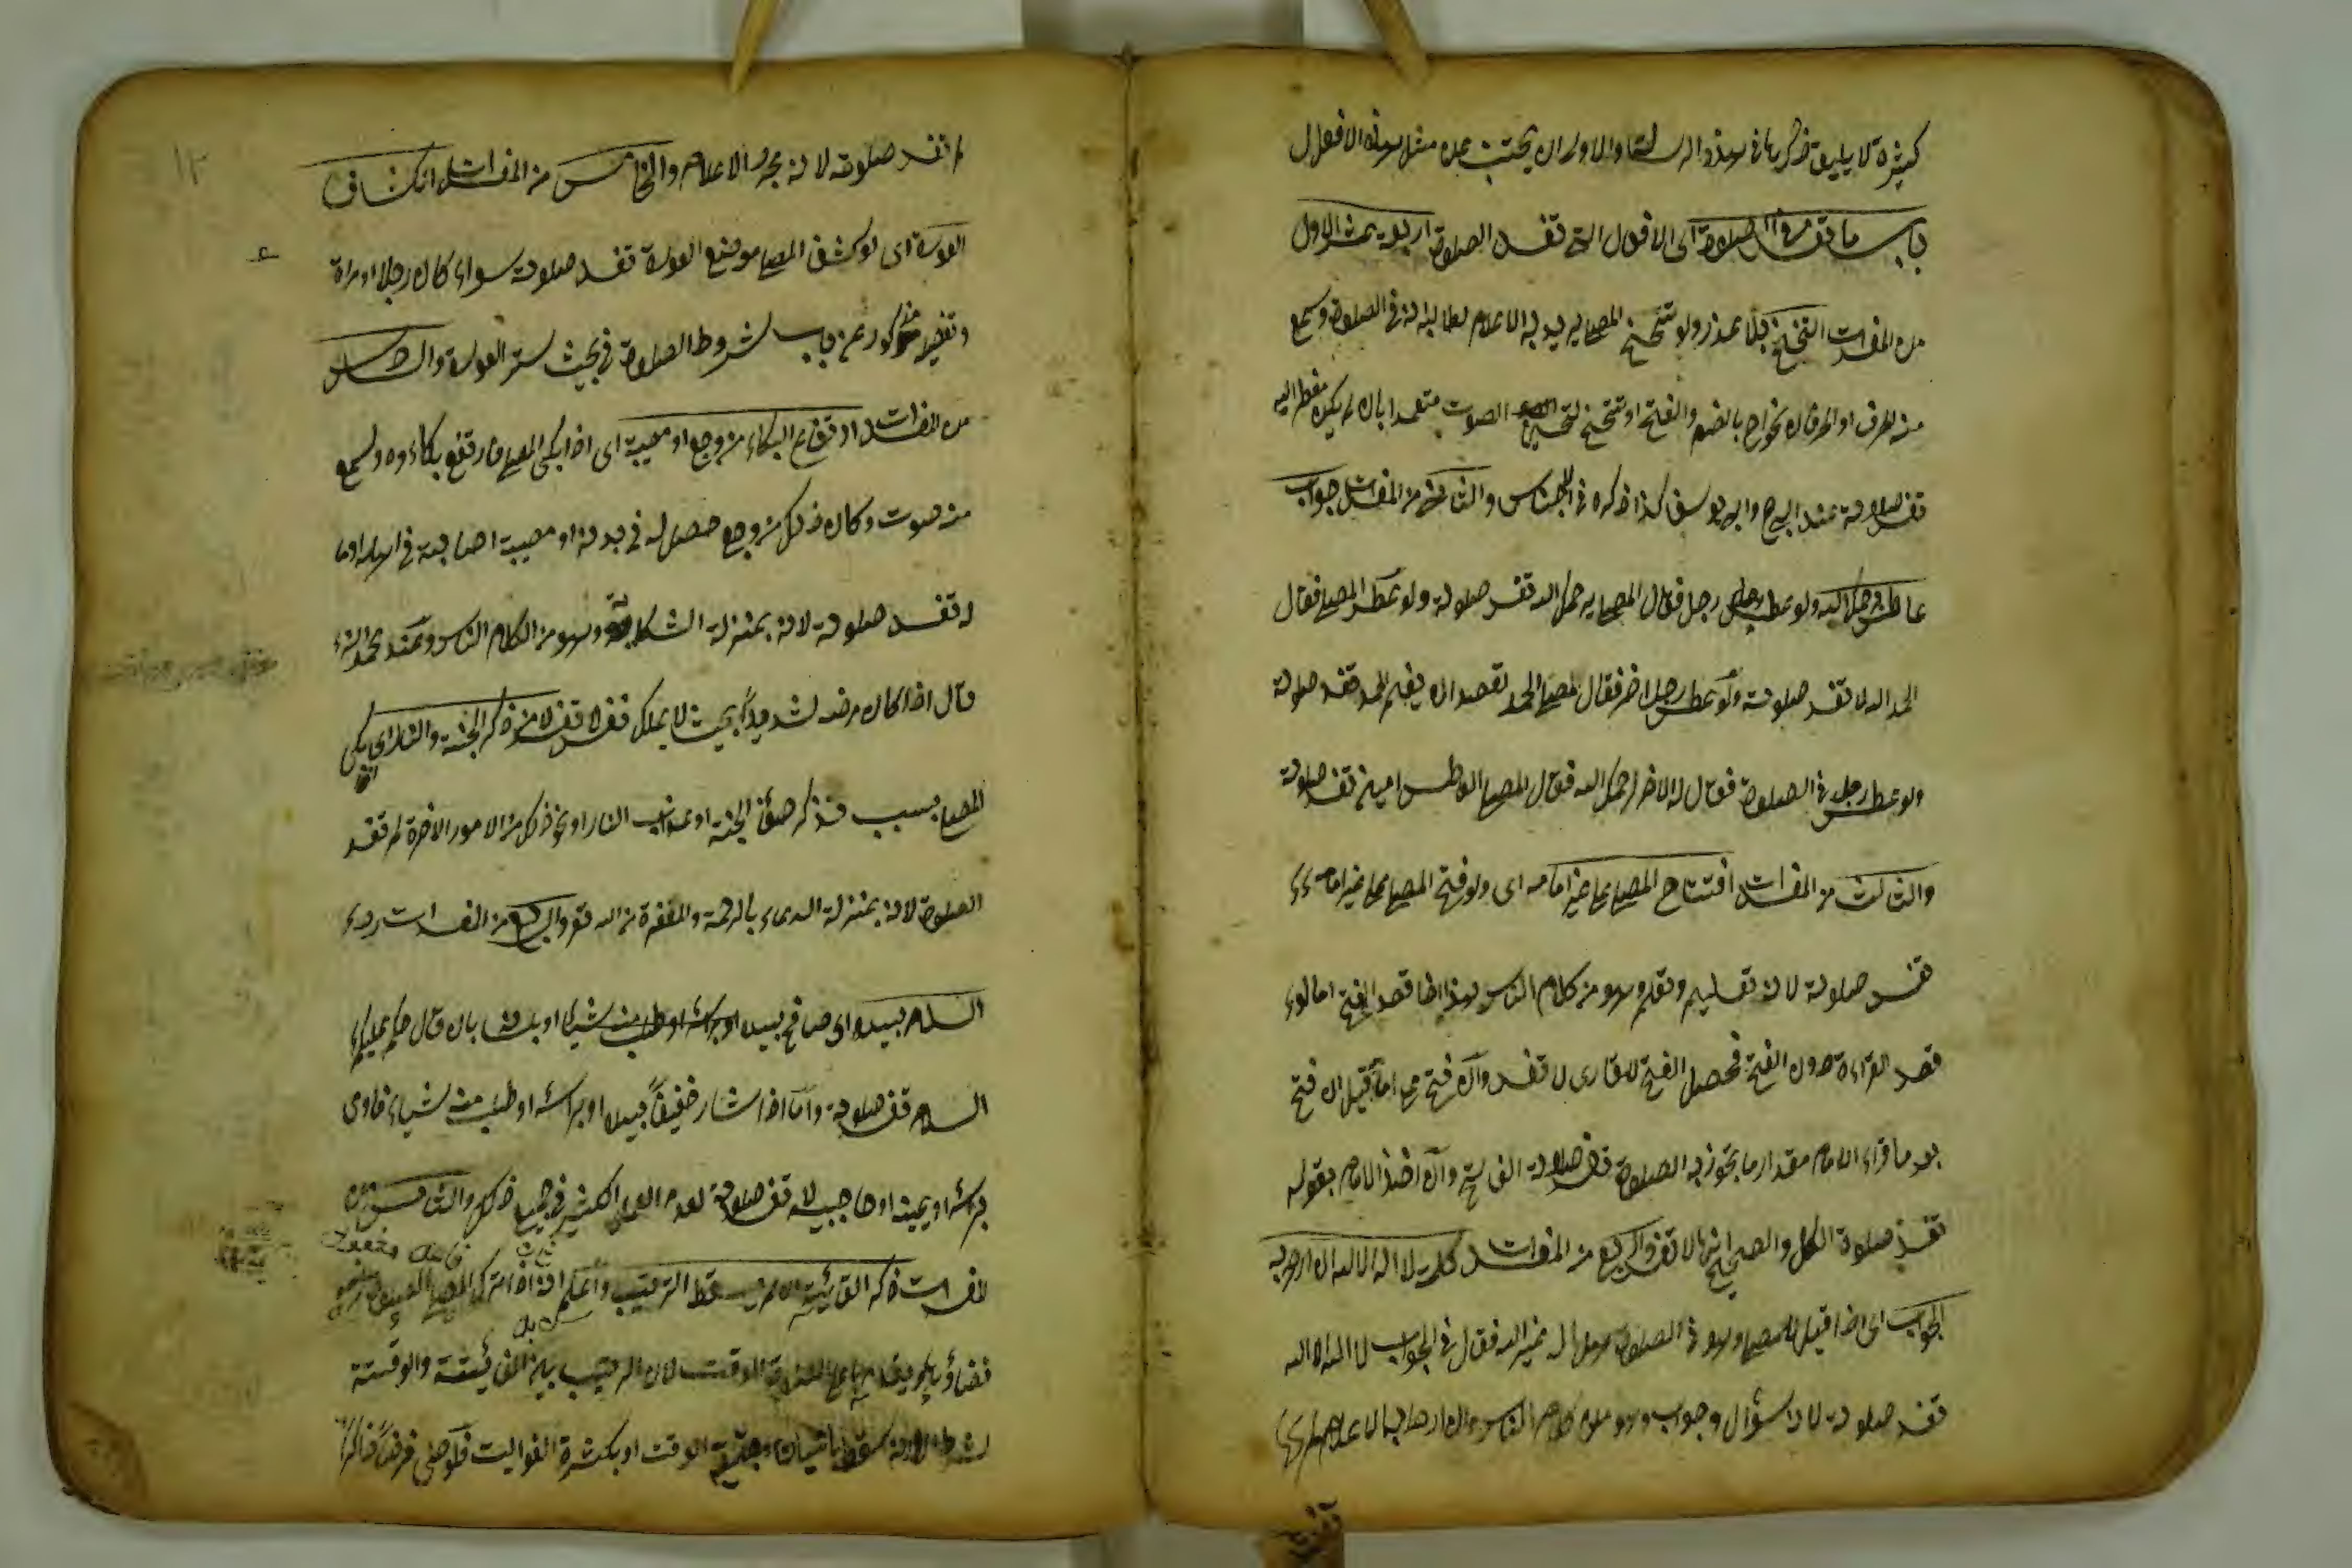 كثيرة لا يليق ذكرها في هذه الرسالة والاولى ان يجتنب عن مثل هذه الافعال
باب ما تفسد الصلوة اى الافعال التى تفسد الصلوة اربعة عشر الاول
من المفسدات التنحنح بلا عذر ولو تنحنح المصلى يريد به الاعلام لطالبه انه فى الصلوة وسمع
منه حرف او حرفان نحو اح بالضم والفتح او تنحنح لتحسين الصوت متعمدا بان لم يكن مضطرا اليه
تفسد صلاته عند ابى ح وابى يوسف كذا ذكره فى الاجناس والثانى من المفسدات جواب
عاطس يرحمك الله ولو عطس رجل فقال المصلى يرحمك الله تفسد صلوته ولو عطس المصلى فقال
الحمد لله لا تفسد صلوته ولو عطس رجل اخر فقال المصلى الحمد لله بقصد ان يفهم الحمد تفسد صلوته
ولو عطس رجل فى الصلوة فقال له الاخر يرحمك الله فقال المصلى العاطس امين تفسد صلوته
والثالث من المفسدات افتتاح المصلى على غير امامه اى ولو فتح المصلى على غير امامه
تفسد صلوته لانه تعليم وتعلم وهو من كلام الناس هذا اذا قصد الفتح اما لو
قصد القراءة دون الفتح فحصل الفتح للقارى لا تفسد وان فتح على امامه قيل ان فتح
بعد ما قراء الامام مقدار ما يجوز به الصلوة تفسد صلاة الفاتح وان اخذ الامام بقوله
تفسد صلوة الكل والصحيح انها لا تفسد والرابع من المفسدات كلمة لا اله الا الله ان اراد به
الجواب اى اذا قيل للمصلى وهو فى الصلوة هل اله غير الله فقال فى الجواب لا اله الا الله
تفسد صلوته لانه سؤال وجواب وهو من كلام الناس وان اراد بها الاعلام
لم تفسد صلوته لانه مجرد الاعلام والخامس من المفسدات انكشاف
العورة اى لو كشف المصلى موضع العورة تفسد صلوته سواء كان رجلا او مراة
وتفصيله مذكور فى باب شروط الصلوة فى بحث ستر العورة والسادس
من المفسدات ارتفاع البكاء من وجع او مصيبة اى اذا بكى المصلى فارتفع بكاءوه وسمع
منه صوت وكان ذلك من وجع حصل له فى بدنه او مصيبة اصابته فى اهله او ما
له تفسد صلوته لانه بمنزلة الشكاية وهو من الكلام الناس وعند محمد انه
قال اذا كان مرضه شديدا بحيث لا يملك نفسه لا تفسد لا من ذكر الجنة والنار اى بكى
المصلى بسبب تذكر صفة الجنة او عذاب النار او نحو ذلك من الامور الاخرة لم تفسد
الصلوة لانه بمنزلة الدعاء بالرحمة والمغفرة من الله تعالى والسابع من المفسدات رد
السلام بيده اى صافح بيده او براسه او طلب منه شيئا او بلسانه بان قال عليكم
السلام تفسد صلوته واما اذا اشار خفيفا بيده او براسه او طلب منه شياء فاومى
براسه او بعينه او حاجبيه لا تفسد صلوته لعدم العمل الكثير فى جميع ذلك والثامن من
المفسدات ذكر الفائتة ان لم يسقط الترتيب واعلم انه اذا ترك المصلى الصلوة
الوقت لان الترتيب بين الفائتة والوقتية
شرط الوقت او بكثرة الفوايت فلو صلى فرضا ذاكرا